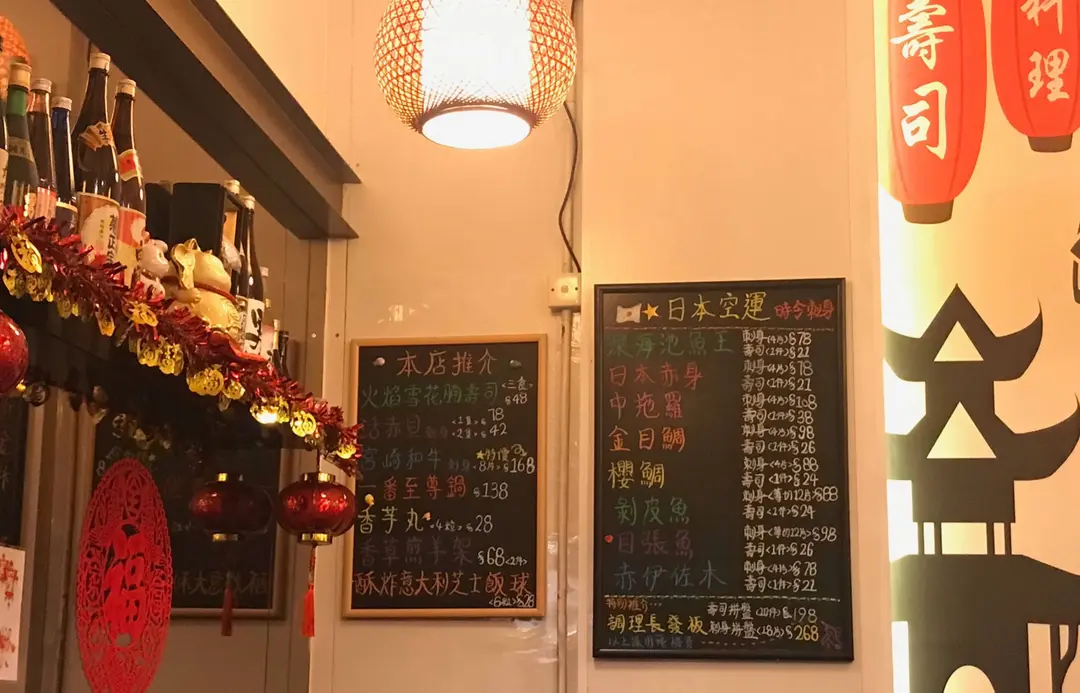 壽司
料理
福
本店推介
火焰雪花胸壽司 <三食> $48
活赤貝 刺身 <1隻> $78
<2隻> $42
宮崎和牛 刺身 ★特價 <8片> $168
一番至尊鍋 $138
香芋丸 <4粒> $28
香草煎羊架 $68<2件>
酥炸意大利芝士飯球
日本空運 時令刺身
深海池魚王 刺身(4片)$78
壽司<1件>$21
日本赤身 刺身(4片)$78
壽司<1件>$21
中拖羅 刺身<4片>$108
壽司<1件>$38
金目鯛 刺身<4片>$98
壽司<1件>$26
櫻鯛 刺身<4片>$88
壽司<1件>$24
剝皮魚 刺身<薄切12片>$88
壽司<1件>$24
目張魚 刺身<薄切12片>$98
壽司<1件>$26
赤伊佐木 刺身<4片>$78
壽司<1件>$21
特別推介...
壽司拼盤 <10件> $198
調理長發板 刺身拼盤<18片>$268